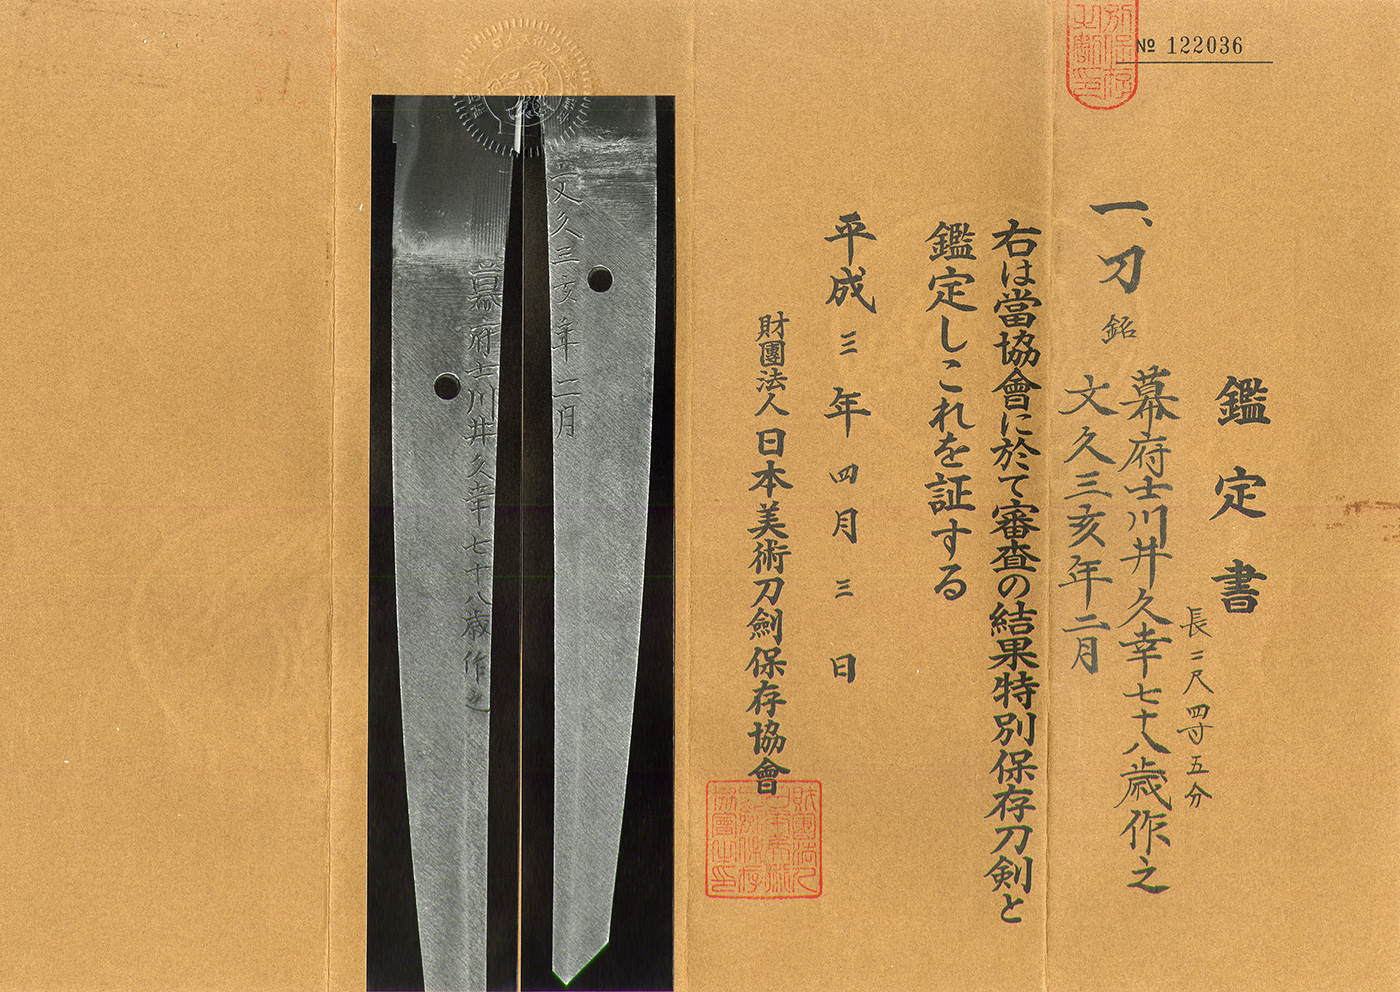 № 122036
鑑定書
一、刀 銘 幕府士川井久幸七十八歳作之
文久三亥年二月
長二尺四寸五分
右は當協會に於て審査の結果特別保存刀剣と
鑑定しこれを証する
平成三年四月三日
財團法人日本美術刀劍保存協會
文久三亥年二月
幕府士川井久幸七十八歳作之